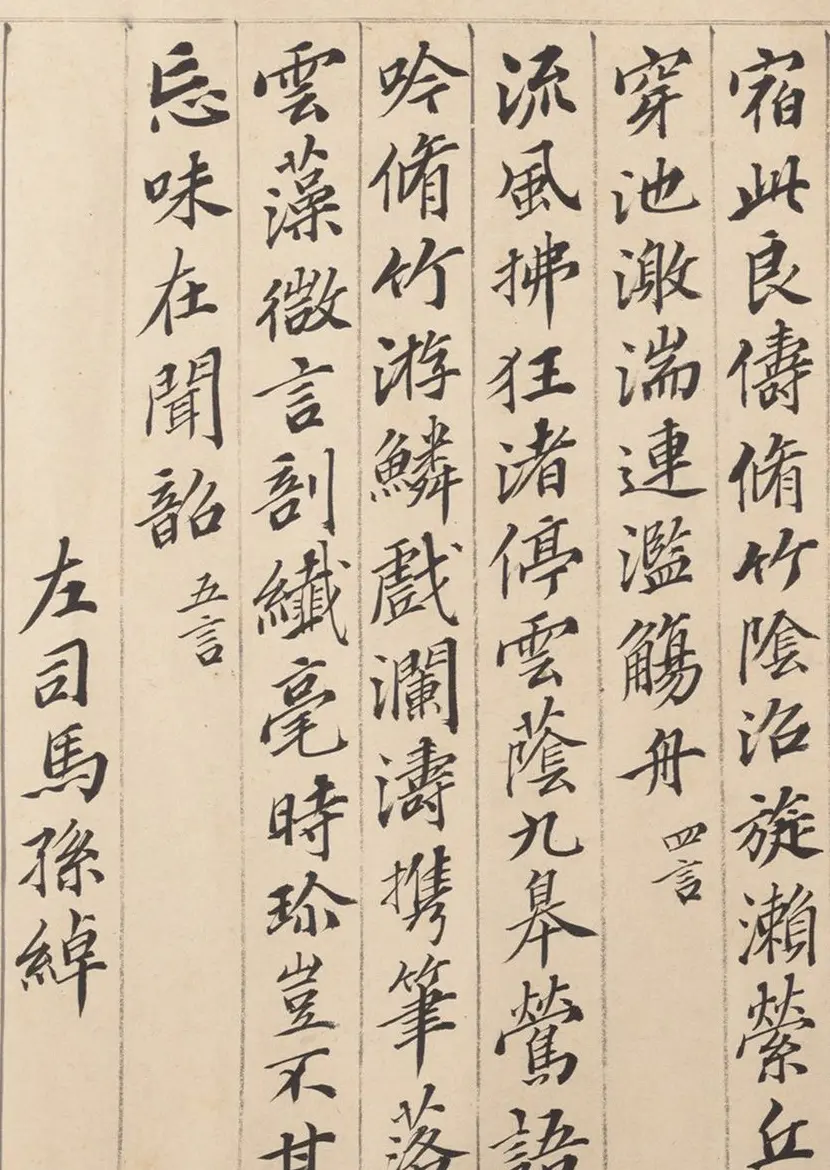 宿此良儔脩竹陰沼旋瀨縈丘
穿池激湍連濫觴舟 四言
流風拂狂渚停雲蔭九皋鶯語
吟脩竹游鱗戲瀾濤攜筆落
雲藻微言剖纖毫時珍豈不甘
忘味在聞韶 五言
左司馬孫綽